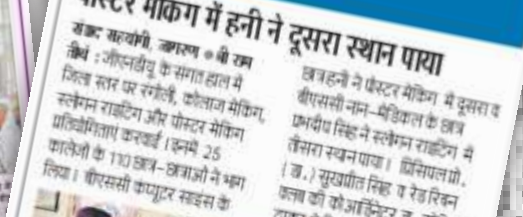 पोस्टर मेकिंग में हनी ने दूसरा स्थान पाया
संवाद सहयोगी, जागरण ● श्री राम
तीर्थ : जीएनडीयू के संगत हाल में
जिला स्तर पर रंगोली, कोलाज मेकिंग,
स्लोगन राइटिंग और पोस्टर मेकिंग
प्रतियोगिताएं करवाई। इनमें 25
कालेजों के 110 छात्र-छात्राओं ने भाग
लिया। बीएससी कंप्यूटर साइंस के
छात्र हनी ने पोस्टर मेकिंग में दूसरा व
बीएससी नान-मेडिकल के छात्र
प्रभदीप सिंह ने स्लोगन राइटिंग में
तीसरा स्थान पाया। प्रिंसिपल प्रो.
(डा.) सुखप्रीत सिंह व रेड रिबन
क्लब की कोआर्डिनेटर व